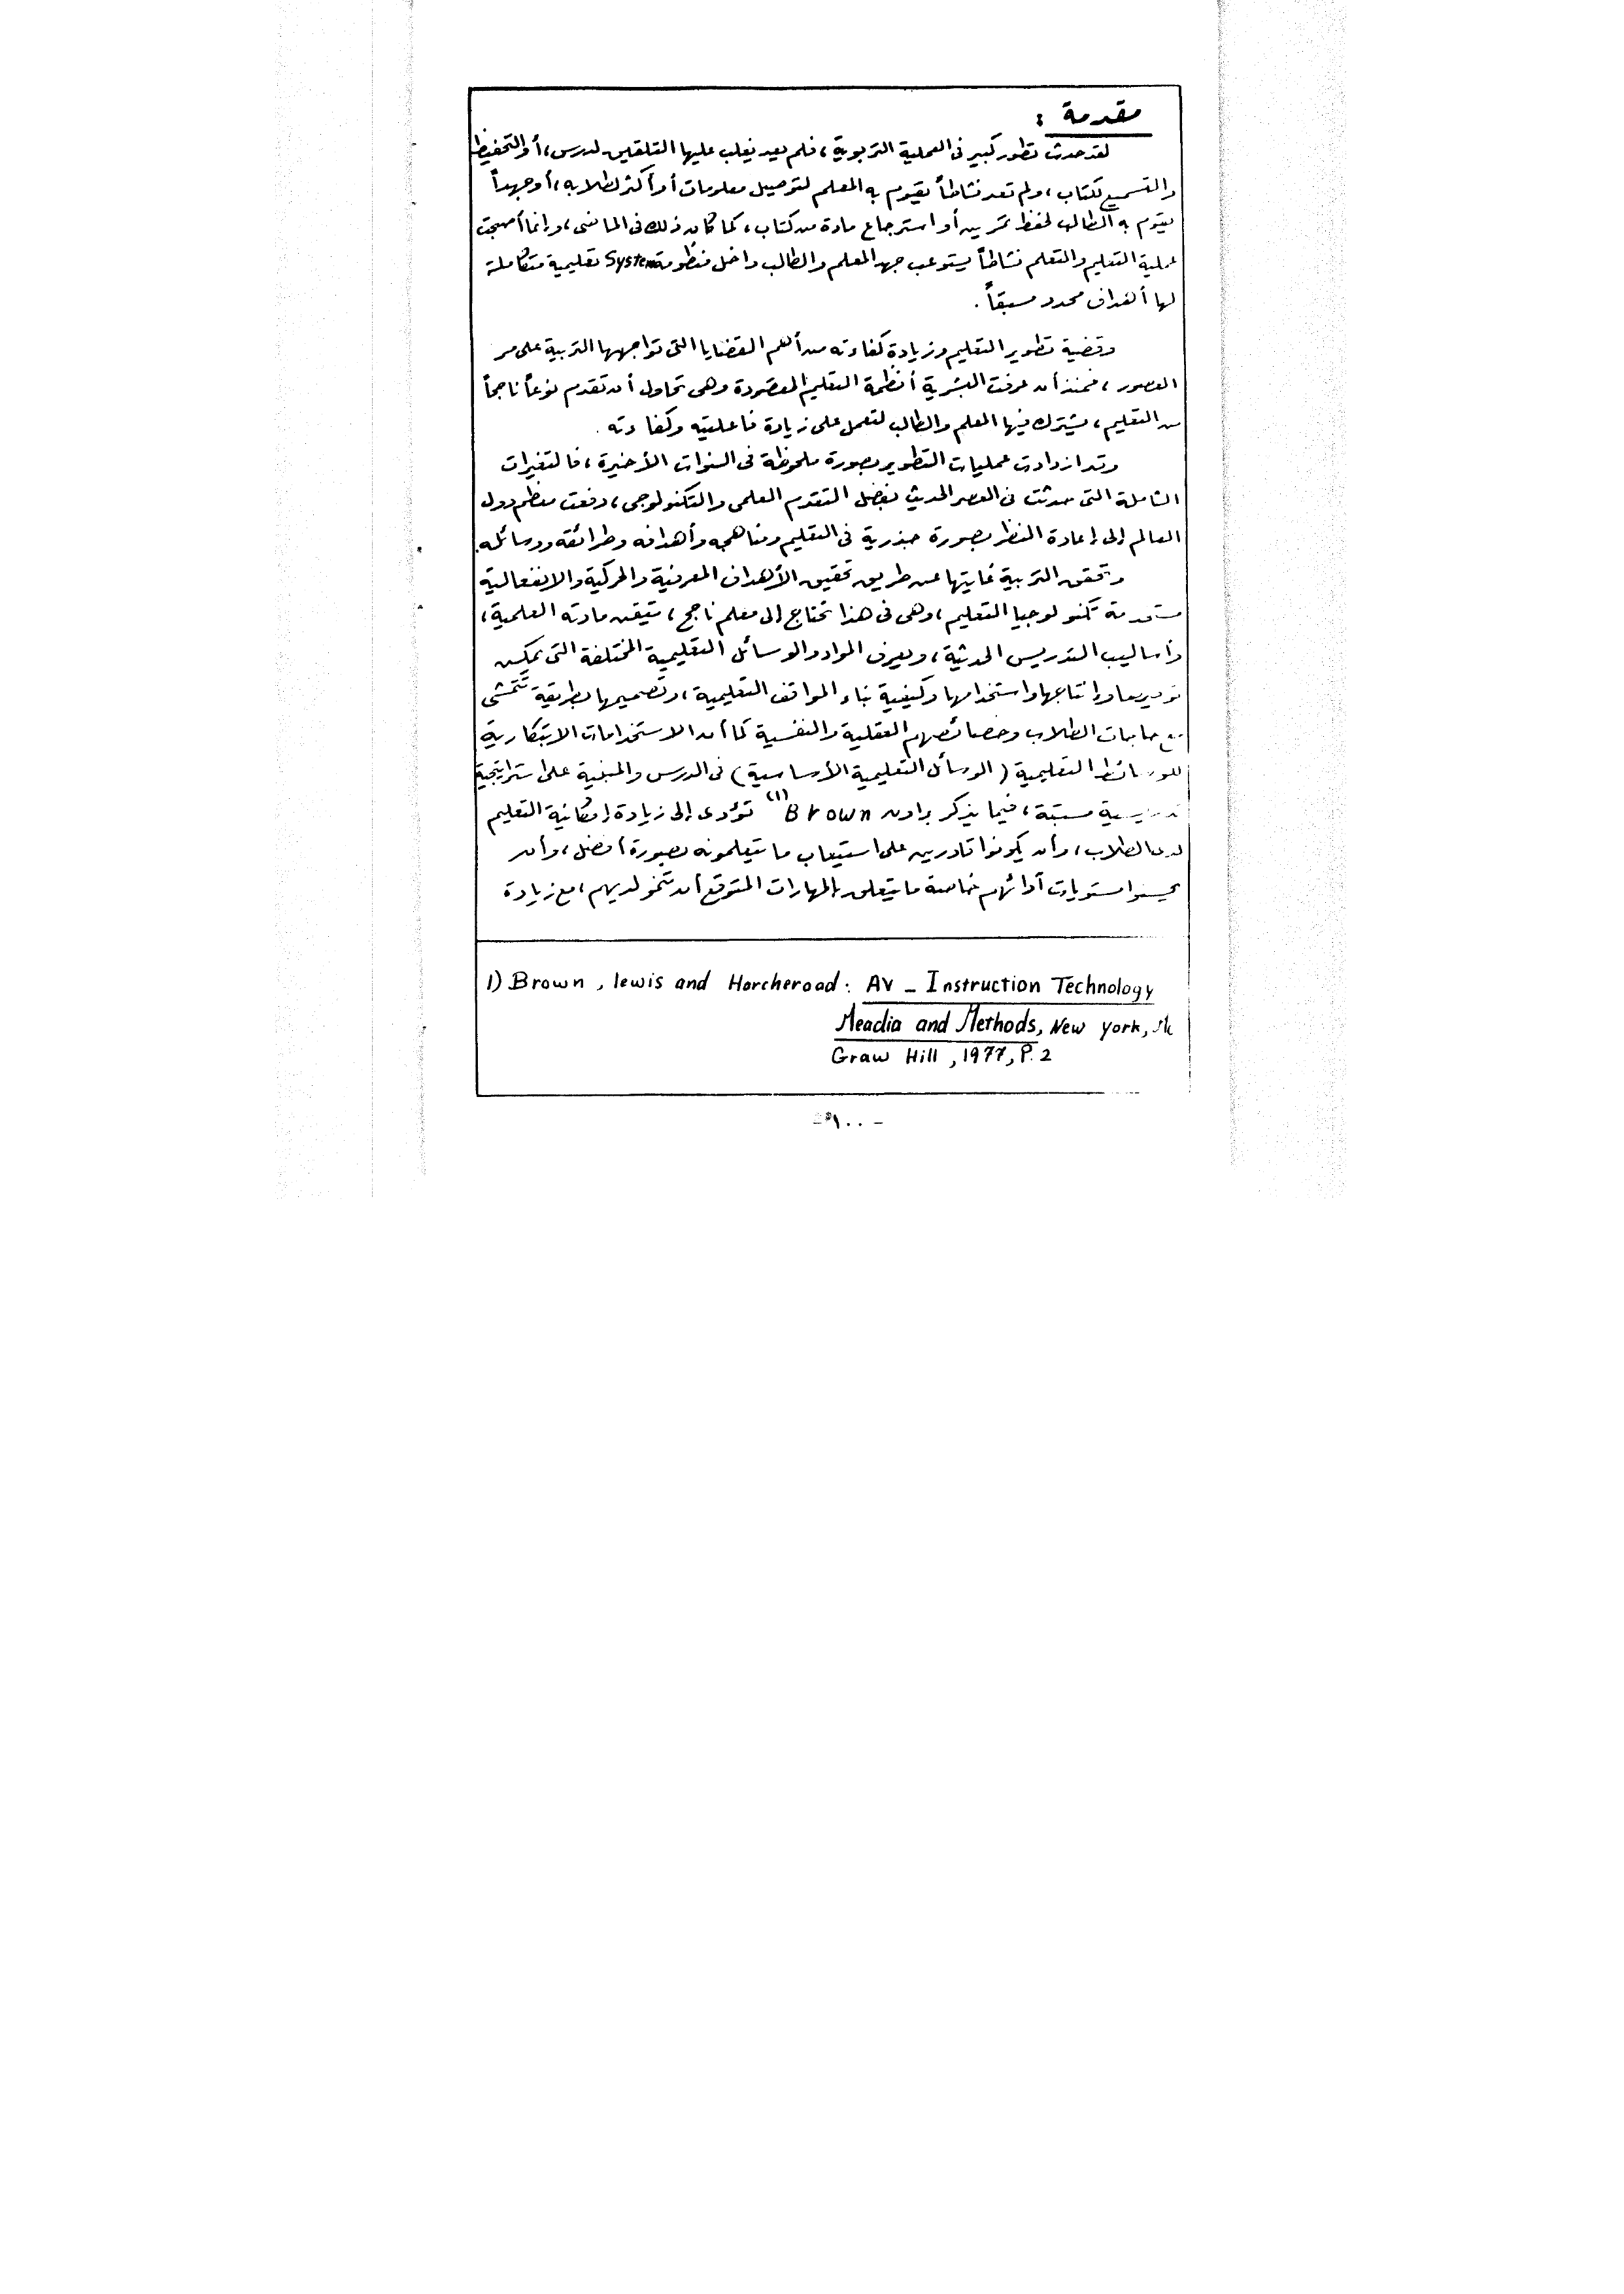 مقدمة :
لقد حدث تطور كبير فى العملية التربوية ، فلم يعد يغلب عليها التلقين لدرس ، أو التحفيظ
والتسميع لكتاب ، ولم تعد نشاطاً يقوم به المعلم لتوصيل معلومات أو أكثر لطلابه ، أو جهداً
يقوم به الطالب لحفظ تمرين أو استرجاع مادة من كتاب ، كما كان ذلك فى الماضى ، وإنما أصبحت
عملية التعليم والتعلم نشاطاً يستوعب جهد المعلم والطالب داخل منظومة System تعليمية متكاملة
لها أهداف محدد مسبقاً .
وقضية تطوير التعليم وزيادة كفاءته من أهم القضايا التى تواجهها التربية على مر
العصور ، فمنذ أن عرفت البشرية أنظمة التعليم المقصودة وهى تحاول أن تقدم نوعاً ناجحاً
من التعليم ، يشترك فيها المعلم والطالب لتعمل على زيادة فاعليته وكفاءته .
وقد ازدادت عمليات التطوير بصورة ملحوظة فى السنوات الأخيرة ، فالتغيرات
الشاملة التى حدثت فى العصر الحديث بفضل التقدم العلمى والتكنولوجى ، دفعت معظم دول
العالم إلى إعادة النظر بصورة جذرية فى التعليم ومناهجه وأهدافه وطرائقه ووسائله .
وتحقق التربية غايتها عن طريق تحقيق الأهداف المعرفية والحركية والانفعالية
مستخدمة تكنولوجيا التعليم ، وهى فى هذا تحتاج إلى معلم ناجح ، يتقن مادته العلمية ،
وأساليب التدريس الحديثة ، ويعرف المواد والوسائل التعليمية المختلفة التى يمكن
توفيرها وإنتاجها واستخدامها وكيفية بناء المواقف التعليمية ، وتصميمها بطريقة تتمشى
مع حاجات الطلاب وخصائصهم العقلية والنفسية كما أن الاستخدامات الابتكارية
للوسائط التعليمية ( الوسائل التعليمية الأساسية ) فى الدرس والمبنية على استراتيجية
تدريسية مسبقة ، فيما يذكر براون Brown (١) تؤدى إلى زيادة إمكانية التعليم
لدى الطلاب ، وأن يكونوا قادرين على استيعاب ما يتعلمونه بصورة أفضل ، وأن
يحسنوا مستويات أدائهم خاصة ما يتعلق بالمهارات المتوقع أن تنمو لديهم ، مع زيادة
1) Brown , lewis and Harcheroad : AV _ Instruction Technology
Meadia and Methods, New york, Mc
Graw Hill , 1977, P. 2